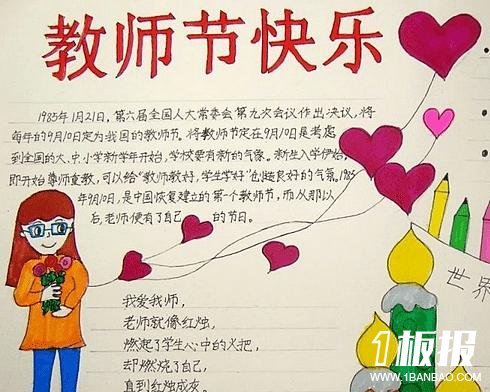 教师节快乐
1985年1月21日，第六届全国人大常委会第九次会议作出决议，将
每年的9月10日定为我国的教师节。将教师节定在9月10日是考虑
到全国的大、中、小学新学年开始，学校要有新的气象。新生入学伊始，
即开始尊师重教，可以给“教师教好，学生学好”创造良好的气氛。1985
年9月10日，是中国恢复建立的第一个教师节，而从那以
后，老师便有了自己的节日。
我爱我师，
老师就像红烛，
燃起了学生心中的火把，
却燃烧了自己，
直到红烛成灰。
世界
1板报
WWW.1BANBAO.COM